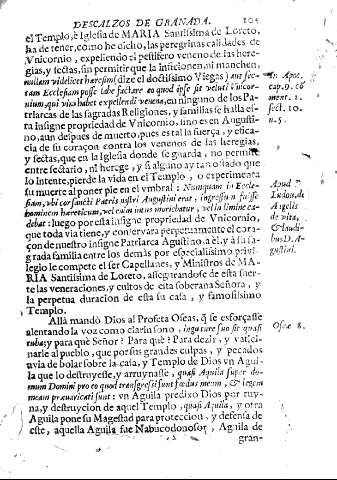 DESCALZOS DE GRANADA. 105
el Templo, è Iglesia de MARIA Santissima de Loreto,
ha de tener, como he dicho, las peregrinas calidades de
Vnicornio, expeliendo el pestifero veneno de las here-
gias, y sectas, sin permitir que la inficionen, ni manchen,
nullam videlicet hæresim (dize el doctissimo Viegas) aut sec-
tam Ecclesiam posse labe factare eo quod ipse sit veluti Vnicor-
nium, qui vim habet expellendi venena, en ninguno de los Pa-
triarcas de las sagradas Religiones, y familias se halla es-
ta insigne propriedad de Vnicornio, sino es en Augusti-
no, aun despues de muerto, pues es tal la fuerça, y efica-
cia de su coraçon contra los venenos de las heregias,
y sectas, que en la Iglesia donde se guarda, no permite
entre sectario, ni herege, y si alguno ay tan osado que
lo intente, pierde la vida en el Templo, o experimenta
su muerte al poner pie en el vmbral: Nunquam in Eccle-
siam, vbi cor sancti Patris nostri Augustini erat, ingressum fuisse
hominem hæreticum, vel cum intus moriebatur, vel in limine ca-
debat: luego por esta insigne propriedad de Vnicornio,
que toda via tiene, y conservara perpetuamente el cora-
çon de nuestro insigne Patriarca Agustino, à el, y à su sa-
grada familia entre los demàs por especialissimo privi-
legio le compete el ser Capellanes, y Ministros de MA-
RIA Santissima de Loreto, assegurandose de esta suer-
te las veneraciones, y cultos de esta soberana Señora, y
la perpetua duracion de esta su casa, y famosissimo
Templo.
Allà mandò Dios al Profeta Oseas, q̃ se esforçasse
alentando la voz como clarin sono, in guture tuo sit quasi
tuba; y para què Señor? Para què? Para dezir, y vatici-
narle al pueblo, que por sus grandes culpas, y pecados
avia de bolar sobre la casa, y Templo de Dios vn Agui-
la que lo destruyesse, y arruynasse, quasi Aquila super do-
mum Domini pro eo quod transgressi sunt fœdus meum, & legem
meam prævaricati sunt: vn Aguila predixo Dios por ruy-
na, y destruycion de aquel Templo, quasi Aquila, y otra
Aguila pone su Magestad para proteccion, y defensa de
este, aquella Aguila fue Nabucodonosor, Aguila de
gran-
In Apoc.
cap. 9. co
ment. 2.
sect. 10.
n. 5.
Apud P.
Ludov. de
Angelis
de vita,
& laudi-
bus D. A-
gustini.
Oseæ 8.